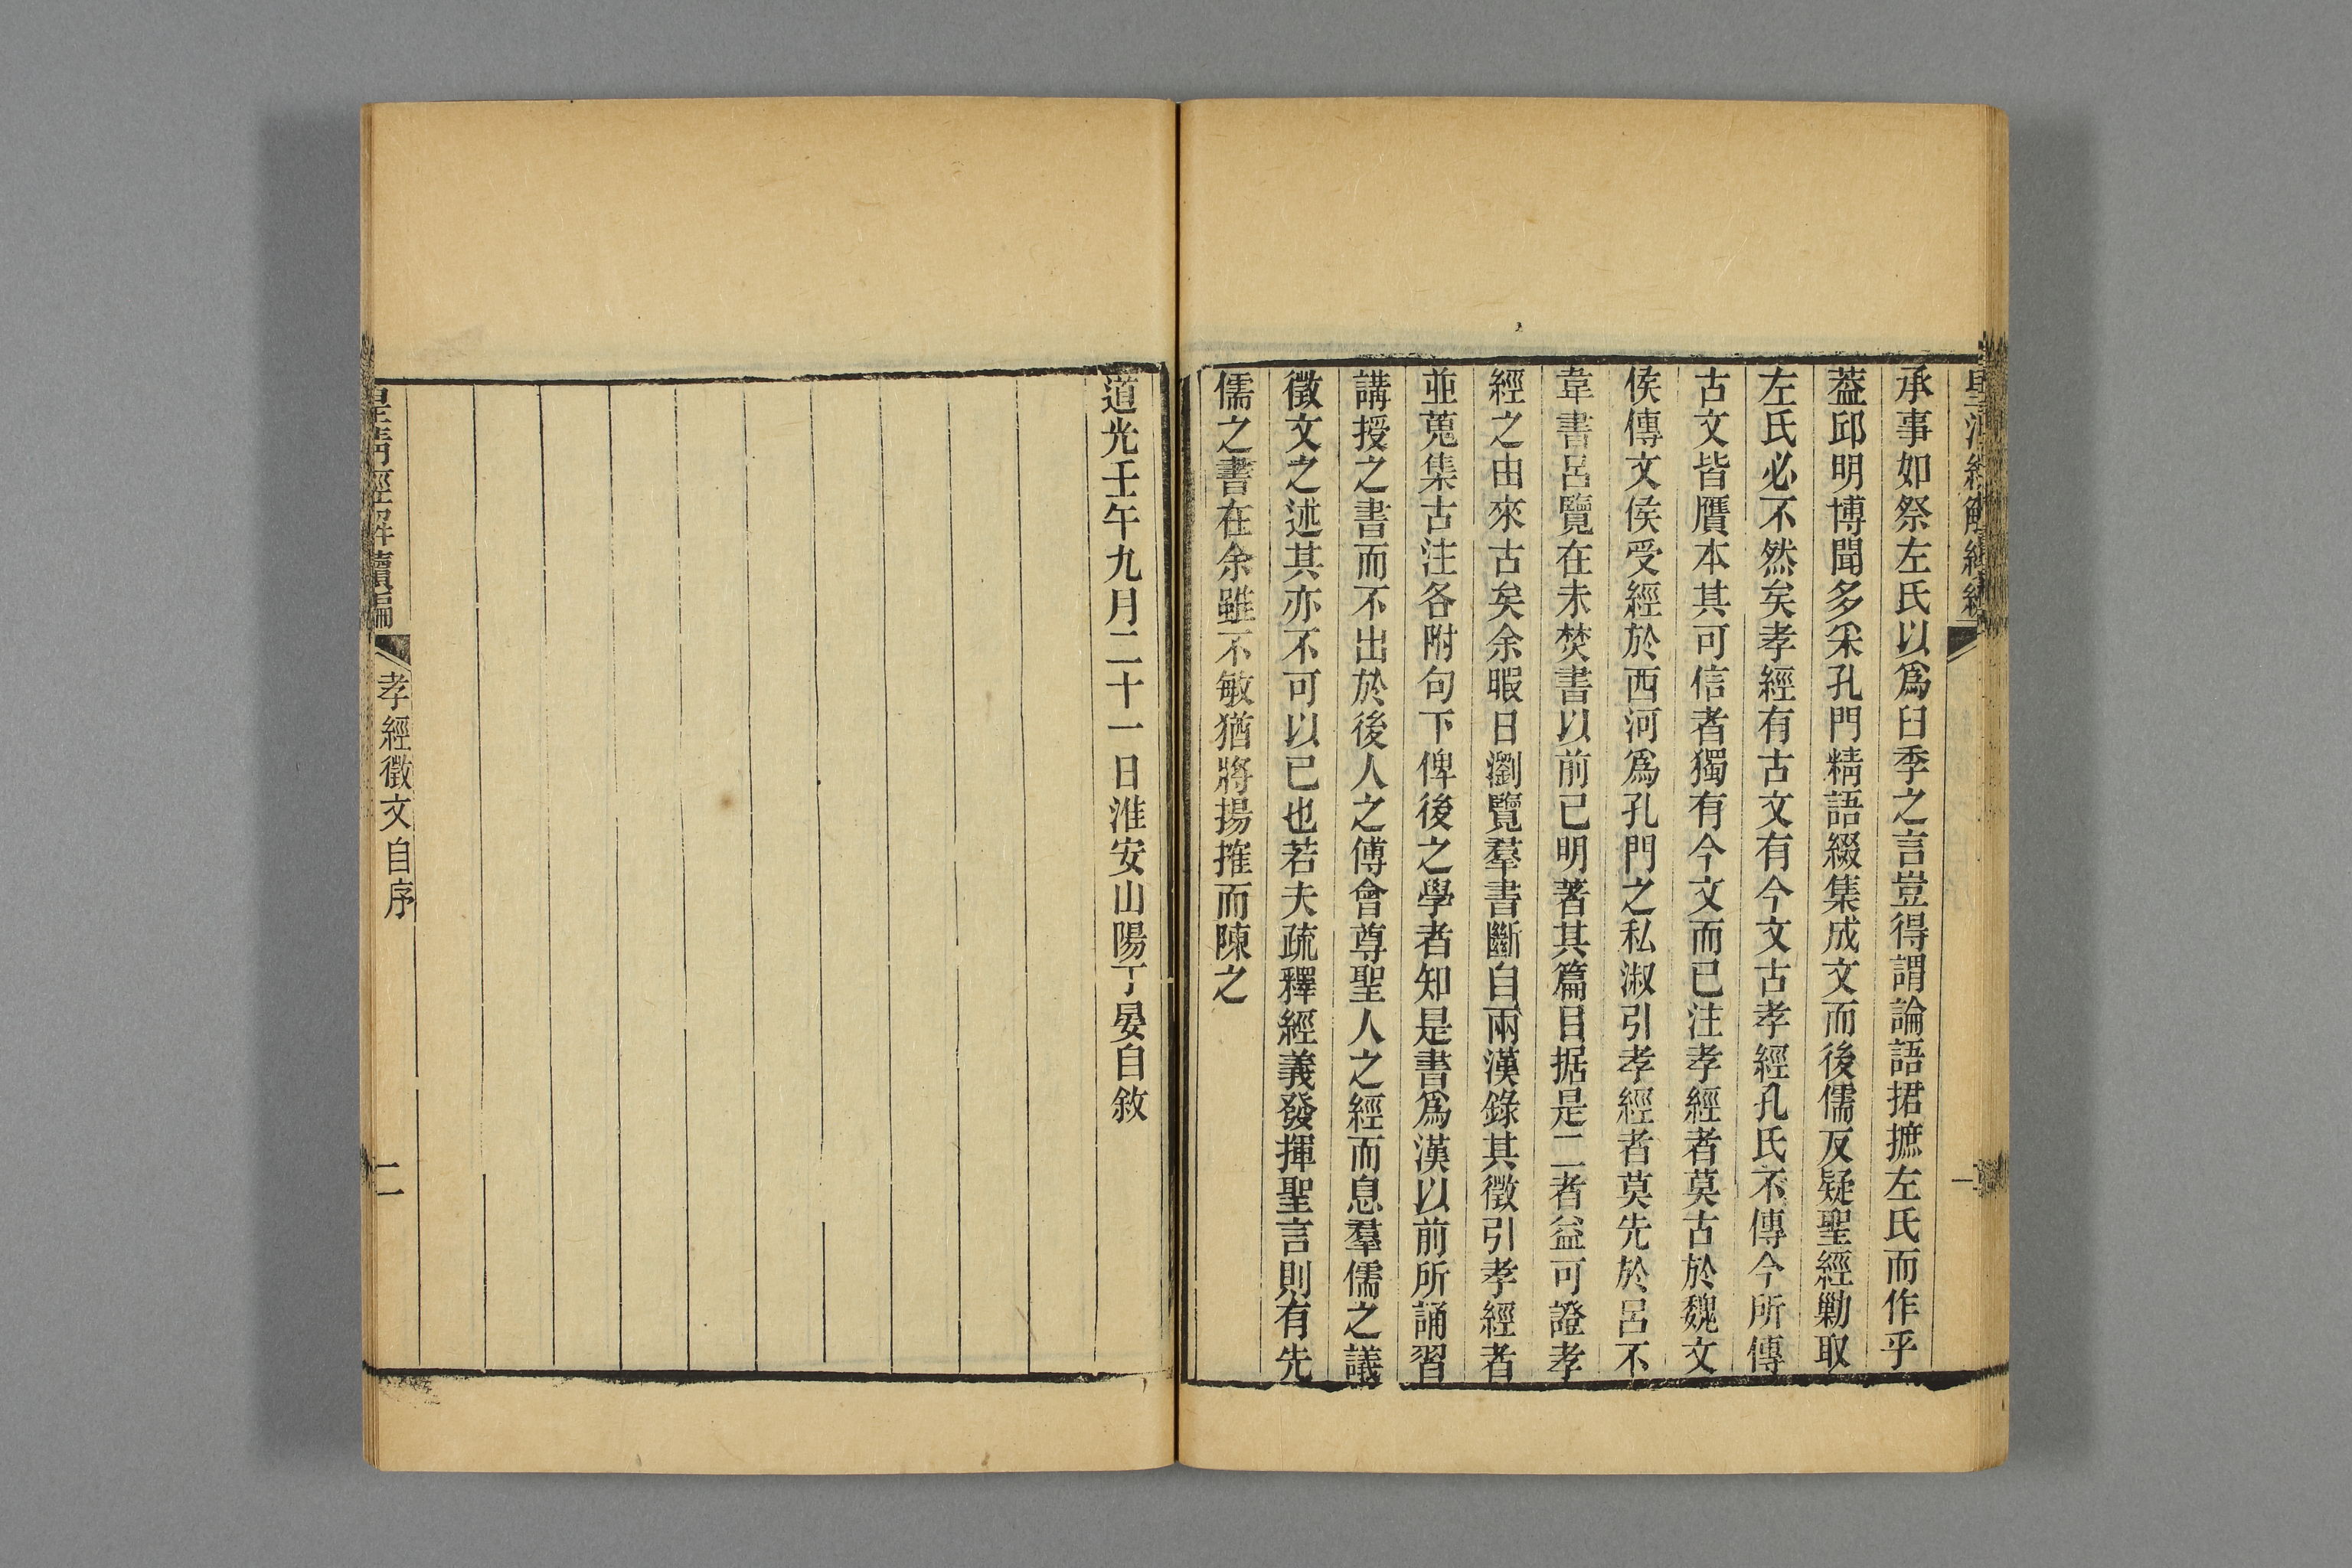 承事如祭左氏以爲臼季之言豈得謂論語捃摭左氏而作乎
葢邱明博聞多采孔門精語綴集成文而後儒反疑聖經勦取
左氏必不然矣孝經有古文有今文古孝經孔氏不傳今所傳
古文皆贋本其可信者獨有今文而已注孝經者莫古於魏文
侯傳文侯受經於西河爲孔門之私淑引孝經者莫先於呂不
韋書呂覽在未焚書以前已明著其篇目据是二者益可證孝
經之由來古矣余暇日瀏覽羣書斷自兩漢錄其徵引孝經者
並蒐集古注各附句下俾後之學者知是書爲漢以前所誦習
講授之書而不出於後人之傅會尊聖人之經而息羣儒之議
徵文之述其亦不可以已也若夫疏釋經義發揮聖言則有先
儒之書在余雖不敏猶將揚搉而陳之
道光壬午九月二十一日淮安山陽丁晏自敘
皇清經解續編
孝經徵文自序
二